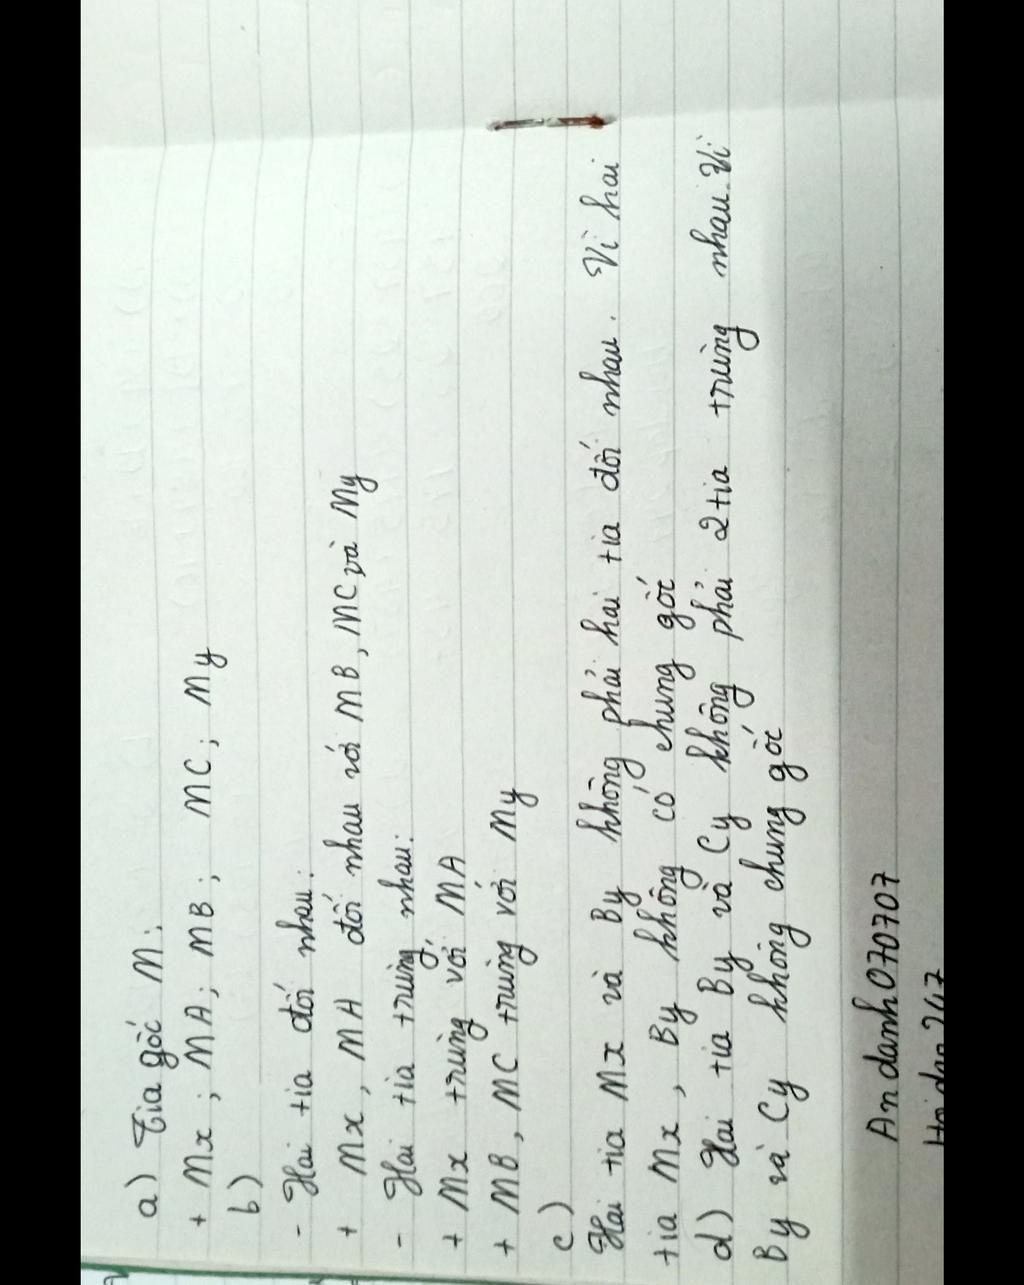 a) Tia gốc M:
+ Mx; MA; MB; MC; My
b)
- Hai tia đối nhau:
+ Mx, MA đối nhau với MB, MC và My
- Hai tia trùng nhau:
+ Mx trùng với MA
+ MB, MC trùng với My
c)
Hai tia Mx và By không phải hai tia đối nhau. Vì hai
tia Mx, By không có chung gốc
d) Hai tia By và Cy không phải 2 tia trùng nhau. Vì
By và Cy không chung gốc
An danh070707
Hoidap247